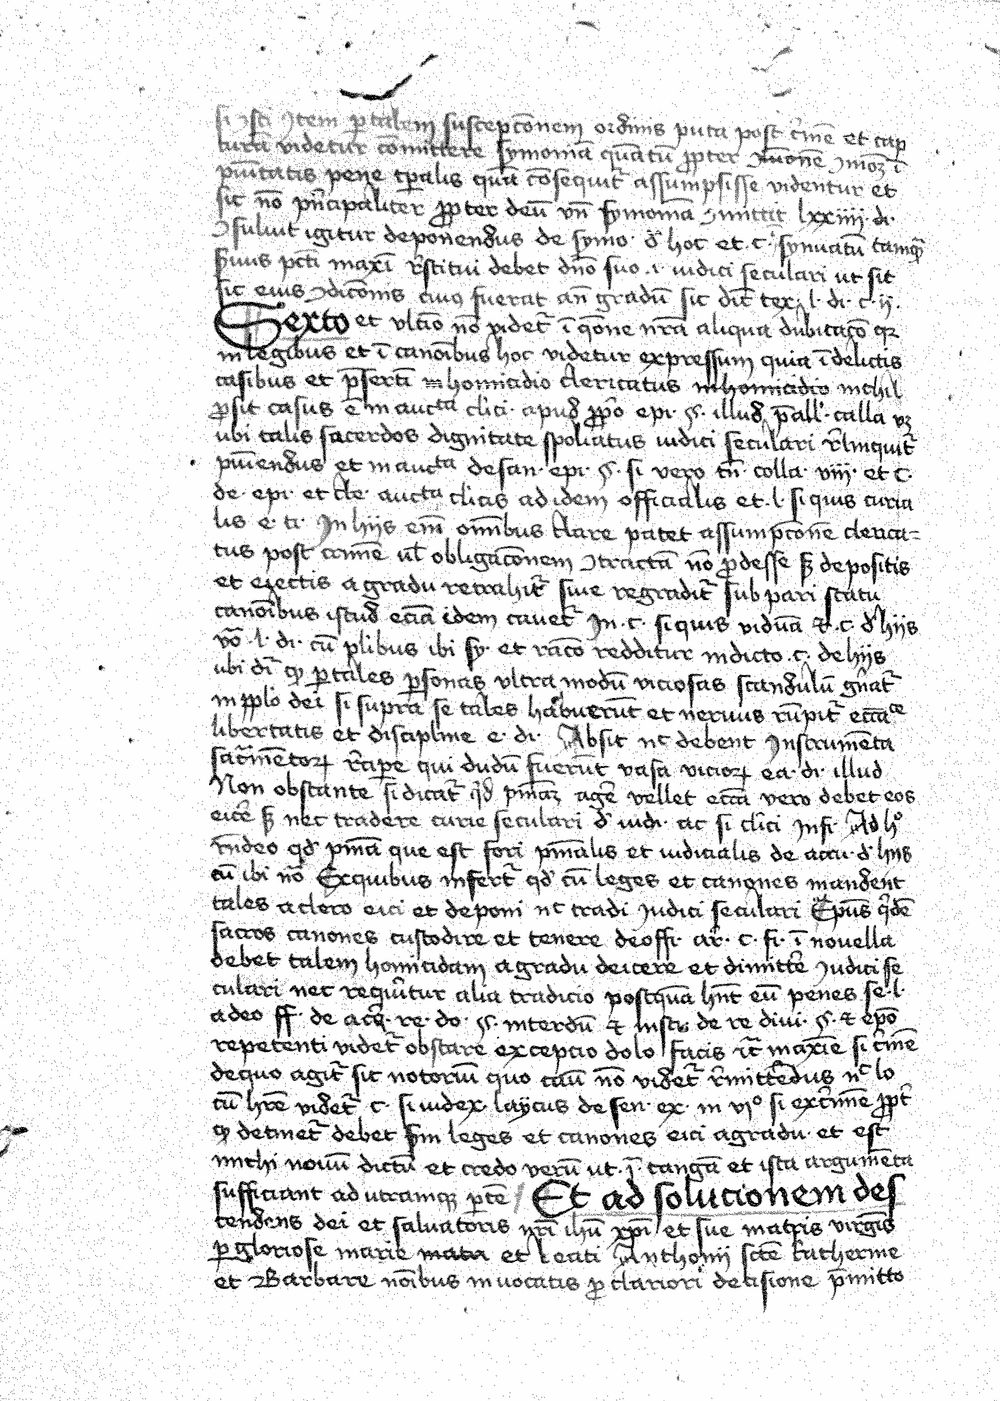 si isti Item p talem suscepcōnem ordinis puta post c̄mē et cap
turā videtur cōmittere symoniā quātū ꝓpter
pūitatis pene tꝑalis quā cōsequit᷑ assumpsisse videntur et
sic nō p̄ncipaliter ꝓpter deū vn̄ symoniā ꝯmittit lxxiiij di.
ꝯsuluit igitur deponendus de symo. d hoc et. c. synuatū tamqꝫ
suus pcti maxī rstitui debet dn̄o suo .i. iudici seculari ut sit
sic eius ꝯdicōnis cuiꝰ fuerat an̄ gradū sic dic̄t tex. l. di. c. ij.
Sexto et vltīo nō videt᷑ ī q̄one nrā aliqua dubitacō qꝛ
in legibus et ī canoībus hoc videtur expressum quia ī delictis
casibus et p̄sertī homicidio clericatus in homicidio nichil
ꝓsit casus ē in aucta clici. apud ꝓpo epi. §. illud p̄all. calla vꝫ
ubi talis sacerdos dignitate spoliatus iudici seculari rlinquit᷑
puniendus et in aucta de san. epi. §. si vero tn̄. colla. viij. et c.
de. epi. et cle. aucta clicis ad idem officialis et. l. si quis curia
lis e. ti. In hiis enī omībus clare patet assumpcōnē clerica=
tus post cīmē ul obligacōnem ꝯtractā nō ꝓdesse sꝫ depositis
et eiectis a gradu retrahit᷑ siue regradit᷑ sub pari statu
canoībus istud eciā idem cauet᷑ In. c. si quis viduā ⁊. c. d hiis
vō .l. di. cū plibus ibi sy. et racō redditur in dicto .c. de hiis
ubi dī ꝙ ꝑ tales ꝑsonas vltra modū viciosas scandulū gn̄at᷑
in ꝓplo dei si supra se tales habuerūt et neruus rūpit᷑ eccāce
libertatis et discipline e. di. Absit nc debent Instrumēta
sacrmētoꝝ rcipe qui dudū fuerūt vasa vicioꝝ ea. di. illud
Non obstante si dicat᷑ qd pn̄iaꝫ agē vellet ecca vero debet eos
eicē sꝫ nec tradere curie seculari d iudi. ac si clici Infi. Ad ho
rndeo qd pn̄iā que est fori pn̄ialis et iudicialis de accu. d hiis
cū ibi nō Ex quibus infert᷑ qd cū leges et canones mandent
tales a clero eici et deponi nc tradi Iudici seculari Epūs qdē
sacros canones custodire et tenere de offi. ar. c. fi. ī nouella
debet talem homicidam a gradu deicere et dimittē Iudici se
culari nec requīritur alia tradicio postquā hn̄t eū penes se. l.
adeo ff. de acq. re. do. §. interdū ⁊ insti. de re diui. §. ⁊ epō
repetenti videt᷑ obstare excepcio dolo facis it᷑ maxīe si c̄mē
de quo agit᷑ sit notoriū quo casu nō videt᷑ rmittēdus nc lo
cū hrē videt᷑ c. si iudex laycus de sen. ex. in vjo si ex c̄mīe ꝓpt᷑
ꝙ detinet᷑ debet sm leges et canones eici a gradu. et est
michi nouū dictū et credo verū ut. ī tangā et ista argumēta
sufficiant ad utramqꝫ ꝑtē / Et ad solucionem des
tendens dei et saluatoris nrī ihū xpī et sue matris virgīs
ꝑ gloriose marie et beati Anthonij scē katherine
et Barbare noībus inuocatis ꝓ clariori decisione p̄mitto